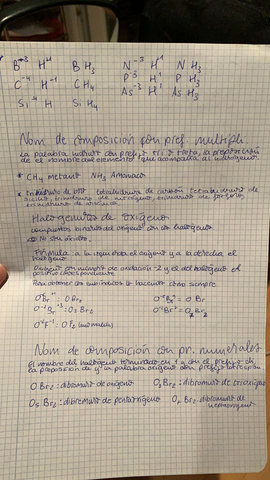 B⁻³ H⁺¹ B H₃ N⁻³ H⁺¹ N H₃
C⁻⁴ H⁺¹ CH₄ P⁻³ H⁺¹ P H₃
Si⁻⁴ H Si H₄ As⁻³ H⁺¹ As H₃
Nom de composición con pref. multipli
La palabra hidruro con prefijo tri o tetra, la preposición
de el nombre del elemento que acompaña al hidrógeno.
* CH₄ metano NH₃ Amoniaco
* trihidruro de boro tetrahidruro de carbono tetrahidruro de
silicio, trihidruro de nitrógeno, trihidruro de fósforo,
trihidruro de arsénico.
Halogenuros de oxígeno
compuestos binarios del oxígeno con los halógenos
Fórmula a la izquierda el oxígeno y a la derecha el
halógeno.
Oxígeno con número de oxidación -2 y el del halógeno el
positivo correspondiente
Para obtener los subíndices lo hacemos como siempre
O Br₂ O Br
O₅ Br₂
O⁻¹F⁻¹: O F₂
Nom de composición con pr. numerales
El nombre del halógeno terminado en
la preposición de y la palabra oxígeno con prefijo
O Br₂: dibromuro de oxígeno O₃ Br₂: dibromuro de trioxígeno
O₅ Br₂: dibromuro de pentaoxígeno O₇ Br₂: dibromuro de
heptaoxígeno